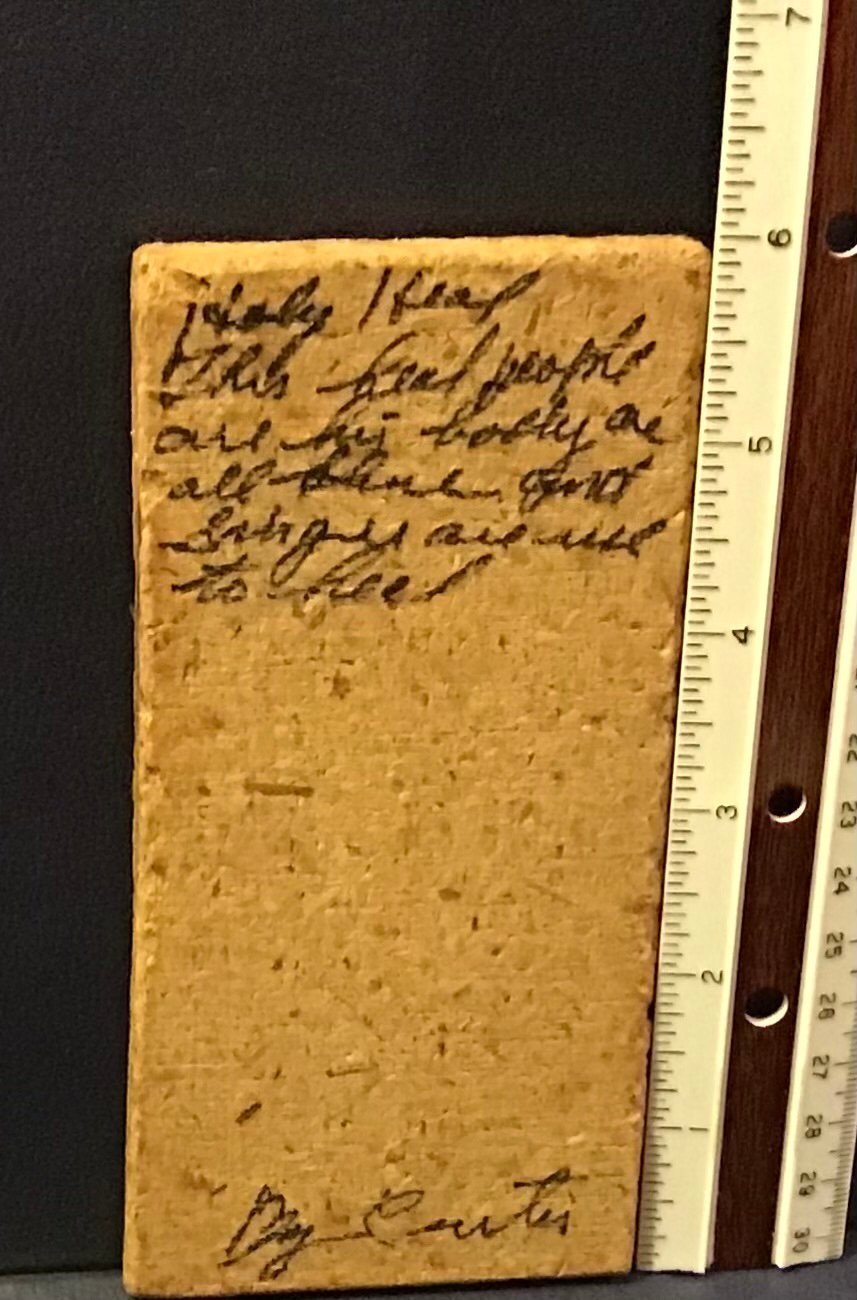 Holy Heal
This heal people
are his body are
all
are use
to heal
By Curtis
7
6
5
4
3
2
1
22
23
24
25
26
27
28
29
30